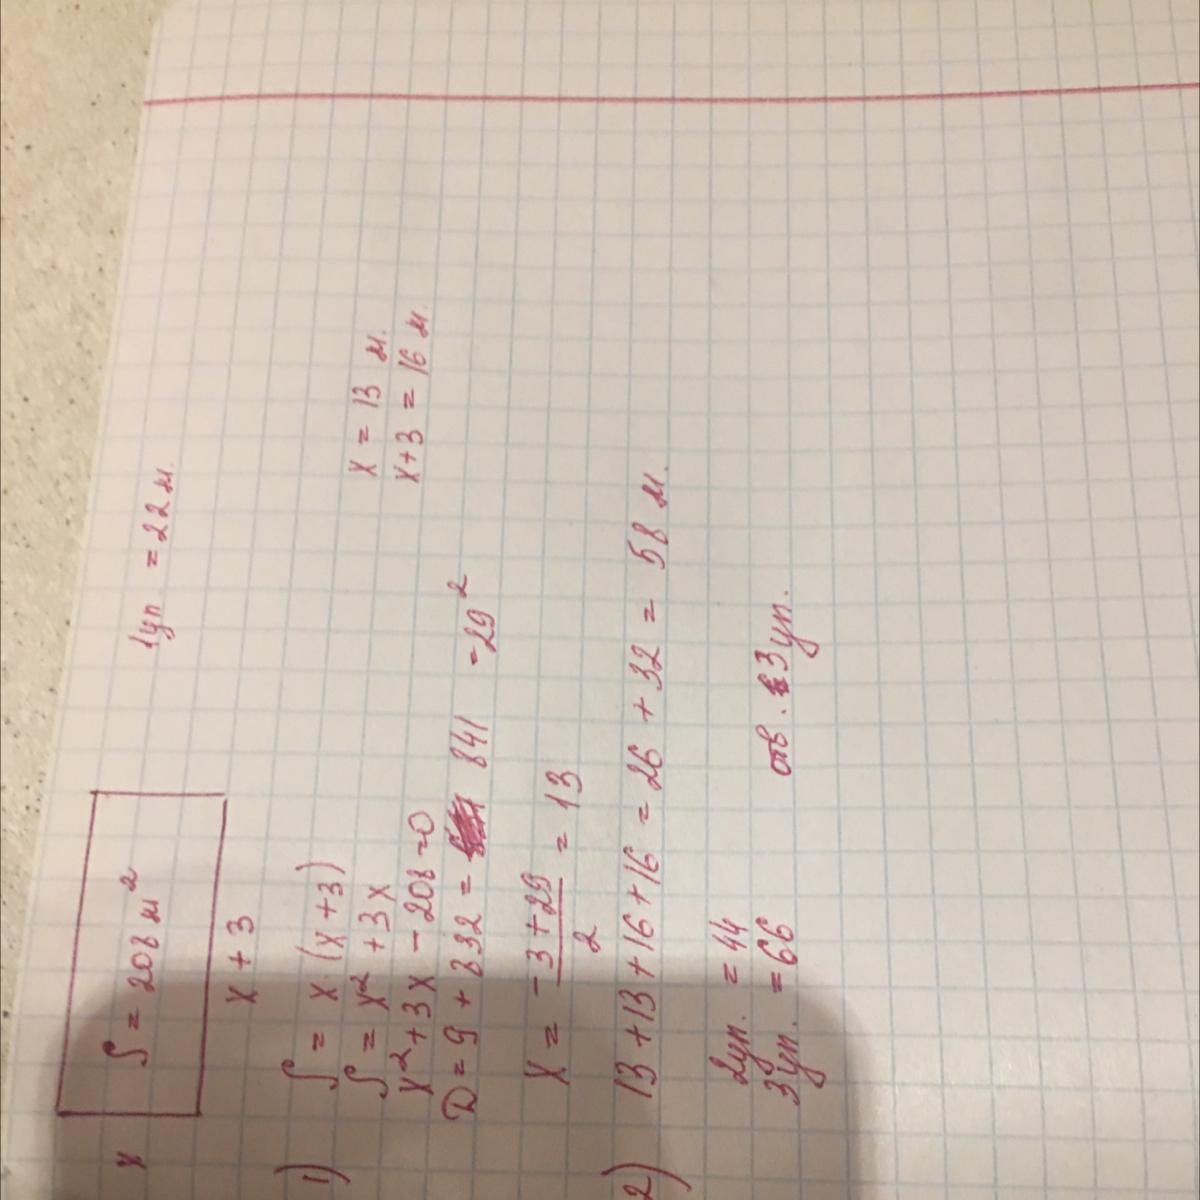 1уп = 22 м.
x S = 208 м²
x + 3
1) S = x (x+3)
S = x² + 3x
x² + 3x - 208 = 0
D = 9 + 832 = 841 = 29²
x = 13 м.
x+3 = 16 м.
x = -3 + 29 / 2 = 13
2) 13 + 13 + 16 + 16 = 26 + 32 = 58 м.
2уп. = 44
3уп. = 66
отв. 3 уп.